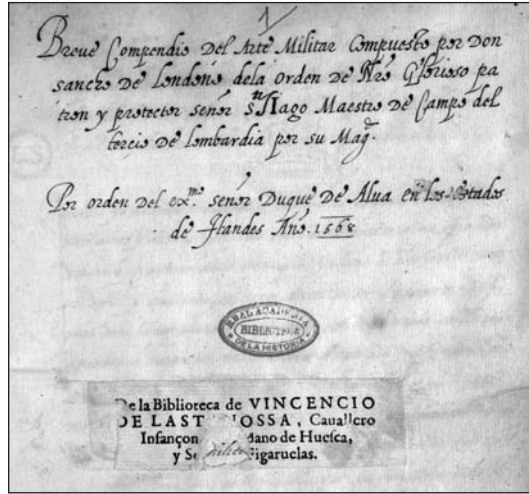 1
Breue Compendio Del Arte Militar Compuesto por Don
sancho De Londoño dela orden De Nr̃o Glorioso pa
tron y protector señor sⁿtiago Maestro De Campo del
tercio De lombardia por su Mag.
Por orden Del ex.ᵐᵒ señor Duque De Alua en los estados
de flandes Año. 1568
REAL ACADEMIA
BIBLIOTECA
DE LA HISTORIA
De la Biblioteca de VINCENCIO
DE LAST OSSA, Cauallero
Infançon dano de Huesca,
y Se igaruelas.